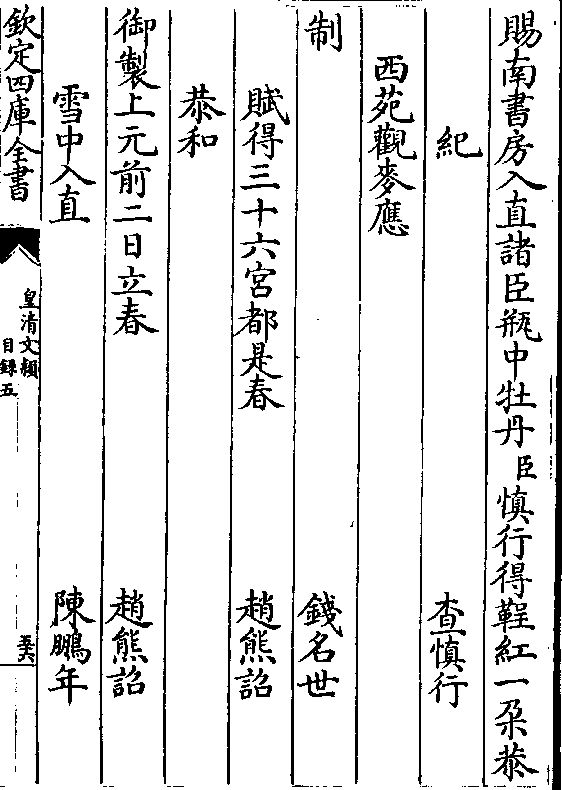 賜南書房入直諸臣瓶中牡丹臣慎行得鞓紅一朶恭
紀　查慎行
西苑觀麥應
制　錢名世
賦得三十六宮都是春　趙熊詔
恭和
御製上元前二日立春　趙熊詔
雪中入直　陳鵬年
欽定四庫全書
皇清文穎
目錄五